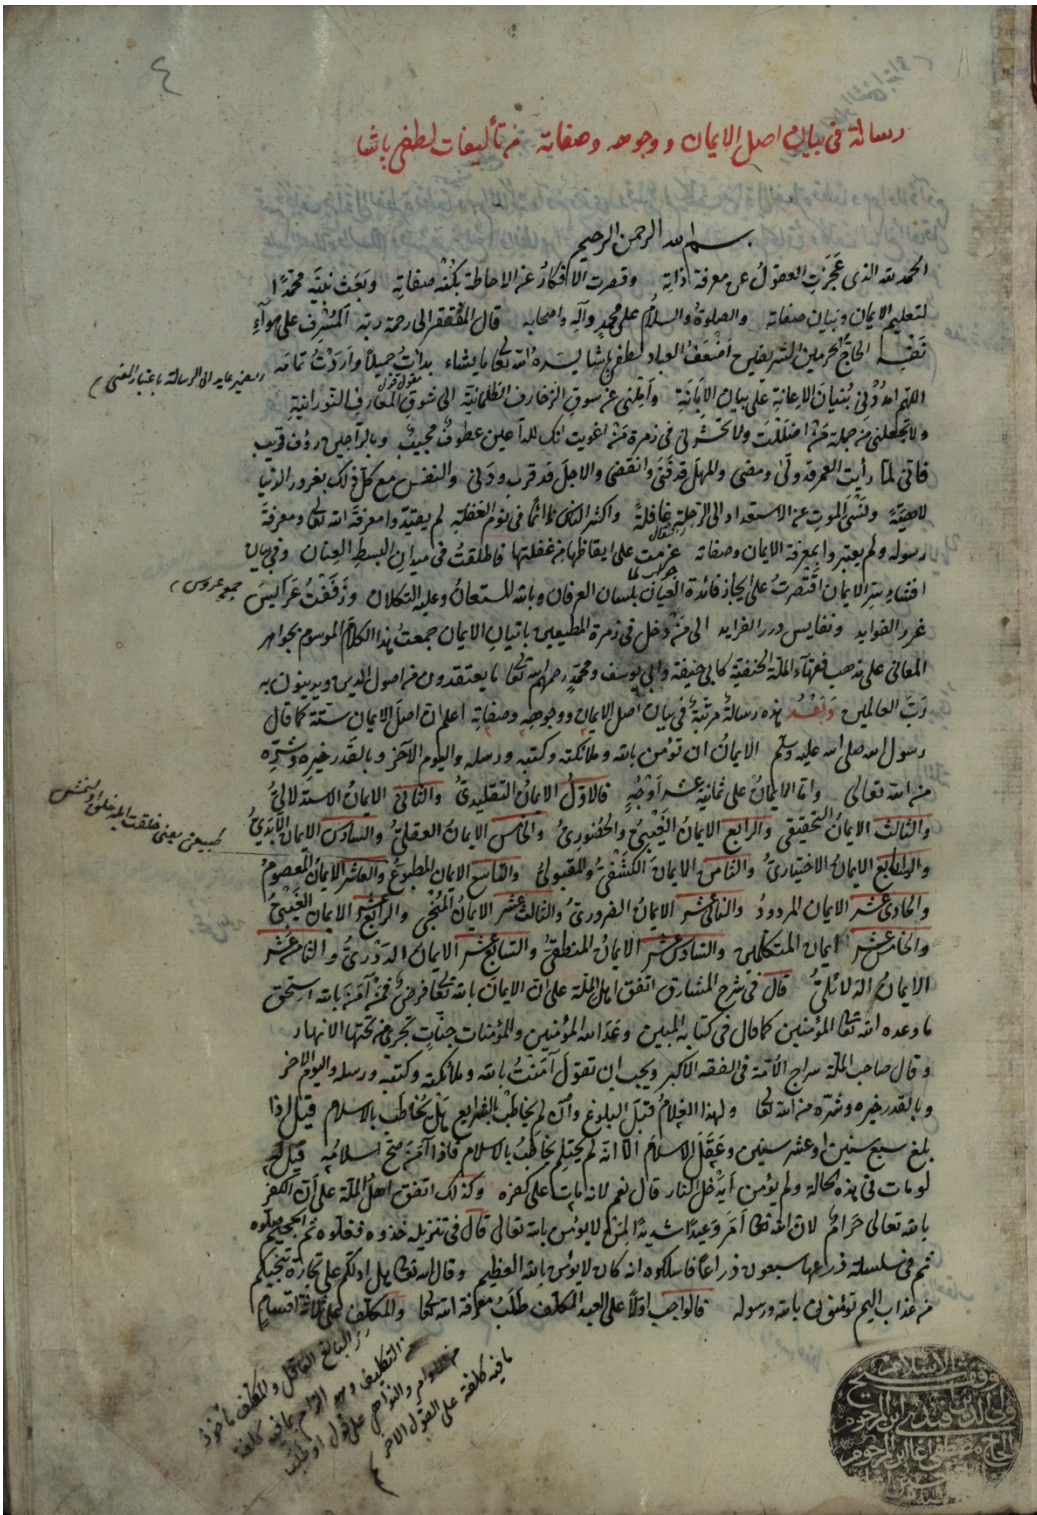 ٤
رسالة فى بيان اصل الايمان ووجوهه وصفاته من تأليفات لطفى پاشا
بسم الله الرحمن الرحيم
الحمد لله الذى عَجَزَتِ العقولُ عن معرفة ذاتِهِ وقصرت الافكارُ عن الاحاطة بكُنْهِ صفاتِهِ وبَعَثَ نبيَّه محمّدًا
لتعليم الايمان وبيان صفاته والصلوةُ والسلامُ على محمدٍ وآلِهِ واصحابه قال المُفْتقِر الى رحمة ربّه المُشْرِف على هوآءِ
نَفْسِه الحاجّ الحرمين الشريفين اَضْعَفُ العباد لطفى پاشا يسّره الله تعالى ما يشاء بدأتُ جميلاً واَرَدْتُ تمامَه
اللهم امْدُدْنى بُنْيان الاِعانةِ على بيان الاِبَانَةِ وأمِلْنى عن سوق الزخارف الظلمانيّة الى شوق المعارف النّورانيّةِ
ولا تجعلنى من جملة مَنْ اضلَلْتَ ولا تحشرنى فى زمرة مَنْ اغويت انك للداعين عطوفٌ مجيبٌ وبالراجين رؤف قريب
فانّى لمّا رأيت العمر قد ولّى ومضى والمهلَ قد فَنَى وانقضى والاجلَ قد قرب ودَنى والنفسَ مع كل ذلك بغرور الدّنيا
لاهِيَةً ولِنَسْىِ الموتِ عن الاستعداد الى الرّحلةِ غافلةً واكثرَ الناس نائمًا فى نوم الغفلةِ لم يقيّدوا معرفةَ الله تعالى ومعرفةَ
رسوله ولم يعتبروا بمعرفة الايمان وصفاته عزمت على ايقاظها من غفلتها فاطلقتُ فى ميدانِ البسطِ العِنان وفى بيان
افشاءِ سِرّ الايمان اقْتَصَرتُ على ايجاز فائدة العيان بلسان العرفان وبالله المستعانُ وعليه التكلان وزَفَفْتُ عَرَايسَ
غرر الفوايد ونفايس درر الفرايد الى مَنْ دخل فى زمرة المطيعين باتيان الايمان جمعتُ هذا الكلامَ الموسوم بجواهر
المعانى على مذهب فقهآء الملّة الحنفيّة كابى حنيفة وابى يوسف ومحمّدٍ رحمهم الله تعالى ما يعتقدون من اصول الدين ويدينون به
رَبَّ العالمين وَبَعْدُ هذه رسالةٌ مرتّبةٌ فى بيان اصل الايمان ووجوهِهِ وصفاتِهِ اعلم ان اصلَ الايمان ستّة كما قال
رسول الله صلى الله عليه وسلم الايمانُ ان تؤمن بالله وملائكته وكتبه ورسله واليوم الآخر وبالقَدَرِ خيرِه وشرِّه
من الله تعالى وامّا الايمانُ على ثمانية عشر اَوْجُهٍ فالاوّلُ الايمانُ التقليدىُّ والثانى الايمانُ الاستدلالىُّ
والثالث الايمانُ التحقيقى والرابع الايمانُ الغَيْبىُّ والحُضُورِىُّ والخامس الايمان العقلىُّ والسادس الايمان الاَبَدىُّ
والسابع الايمانُ الاختيارىُّ والثامن الايمان الكَشْفِىُّ والمقبولُ والتاسع الايمان المطبوعُ والعاشر الايمانُ المعصومُ
والحادى عشر الايمان المردودُ والثانى عشر الايمانُ الضرورىُّ والثالث عشر الايمانُ المُنْجِى والرابع عشر الايمان الغَيْبِىُّ
والخامس عشر ايمان المتكلمين والسادس عشر الايمانُ المنطقىُّ والسابع عشر الايمان الدَوْرِىُّ والثامن عشر
الايمانُ الدلائلىُّ قال فى شرح المشارق اتفق اهل الملّة على ان الايمان بالله تعالى فرضٌ فمَنْ آمَنَ بالله استحقّ
ما وعده الله تعالى المؤمنين كما قال فى كتابه المبين وعَدَ الله المؤمنين والمؤمنات جنّاتٍ تجرى من تحتها الانهار
وقال صاحب الملّة سراج الاُمّة فى الفقه الاكبر ويجب ان تقولَ آمَنْتُ بالله وملائكته وكتبه ورسله واليوم الآخر
وبالقدر خيره وشرّه من الله تعالى ولهذا الغلامُ قبل البلوغ وان لم يخاطَبْ بالشرايع بل يُخاطَبُ بالاسلام قيل اذا
بلغ سبع سنين او عشر سنين وعَقَلَ الاسلامَ الّا انّه لم يحتلم يخاطبُ بالاسلام فاذا آمَنَ صحّ اسلامُه قيل له
لو مات فى هذه الحالة ولم يؤمن أيدْخل النار قال نعم لانه مات على كفره وكذلك اتفق اهل الملّة على أن الكفرَ
بالله تعالى حَرَامٌ لان الله تعالى اَمَرَ وَعِيدًا شديدًا لمَنْ لا يؤمن بالله تعالى قال فى تنزيله خذوه فغلّوه ثم الجحيم صلّوه
ثم فى سلسلة ذرعها سبعون ذراعًا فاسلكوه انه كان لا يؤمن بالله العظيم وقال الله تعالى هل ادلّكم على تجارة تنجيكم
من عذاب اليم تؤمنون بالله ورسوله فالواجب اوّلًا على العبد المكلّف طَلَبُ معرفة الله تعالى والمكلّف على ثلاثة اقسامٍ
ضمير عايد الى الرسالة باعتبار المعنى
جمع عروس
البالغ العاقل والمكلف مأخوذ
من التكليف وهو الزام ما فيه كلفة
من الاوامر والنواهى على قول او طلب
ما فيه كلفة على القول الآخر